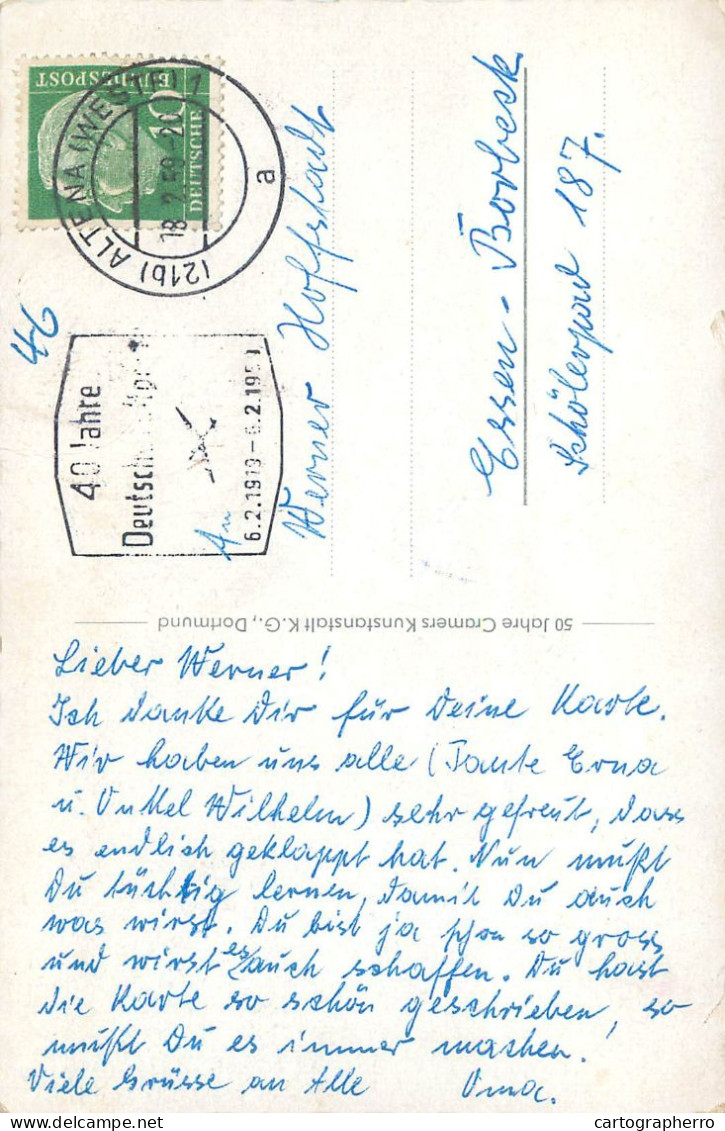 DEUTSCHE
BUNDESPOST
10
(21b) ALTENA (WESTF) 1
18.2.59-20
a
46
40 Jahre
6.2.1919-6.2.1959
An
Werner Hoffstadt
Essen-Borbeck
Schölerpad 187.
50 Jahre Cramers Kunstanstalt K.G., Dortmund
Lieber Werner!
Ich danke Dir für Deine Karte.
Wir haben uns alle (Tante Erna
u. Onkel Wilhelm) sehr gefreut, dass
es endlich geklappt hat. Nun mußt
Du tüchtig lernen, damit Du auch
was wirst. Du bist ja schon so gross
und wirst es auch schaffen. Du hast
die Karte so schön geschrieben, so
mußt Du es immer machen!
Viele Grüsse an Alle Oma.
cartographerro